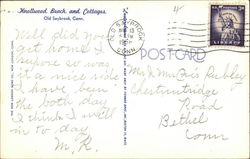 Knollwood Beach and Cottages,
Old Saybrook, Conn.
OLD SAYBROOK
CONN
U.S. POSTAGE
LIBERTY
POST CARD
Well did you
get home I
suppose so was
it a nice ride
I have been
the both day
I think I will
in to day
M. R.
Mr & Mrs Cris Rubley
Chestnutridge
Road
Bethel
Conn